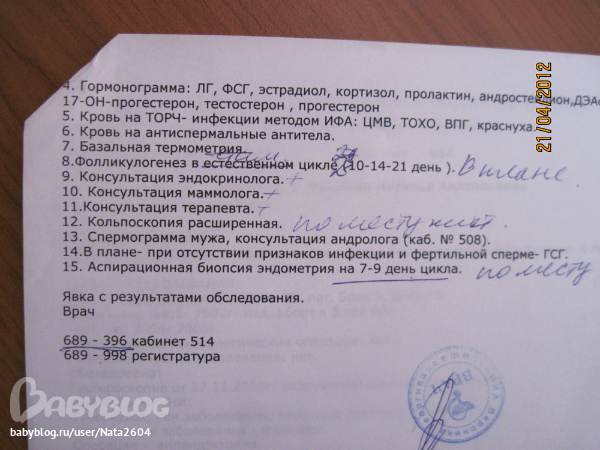 4. Гормонограмма: ЛГ, ФСГ, эстрадиол, кортизол, пролактин, андростендион,ДЭАс
17-ОН-прогестерон, тестостерон , прогестерон
5. Кровь на ТОРЧ- инфекции методом ИФА: ЦМВ, ТОХО, ВПГ, краснуха.
6. Кровь на антиспермальные антитела.
7. Базальная термометрия.
8.Фолликулогенез в естественном цикле (10-14-21 день ). В плане
9. Консультация эндокринолога. +
10. Консультация маммолога. +
11.Консультация терапевта. +
12. Кольпоскопия расширенная. по месту жит.
13. Спермограмма мужа, консультация андролога (каб. № 508).
14.В плане- при отсутствии признаков инфекции и фертильной сперме- ГСГ.
15. Аспирационная биопсия эндометрия на 7-9 день цикла. по месту
Явка с результатами обследования.
Врач
689 - 396 кабинет 514
689 - 998 регистратура
21/04/2012
BABYBLOG
babyblog.ru/user/Nata2604